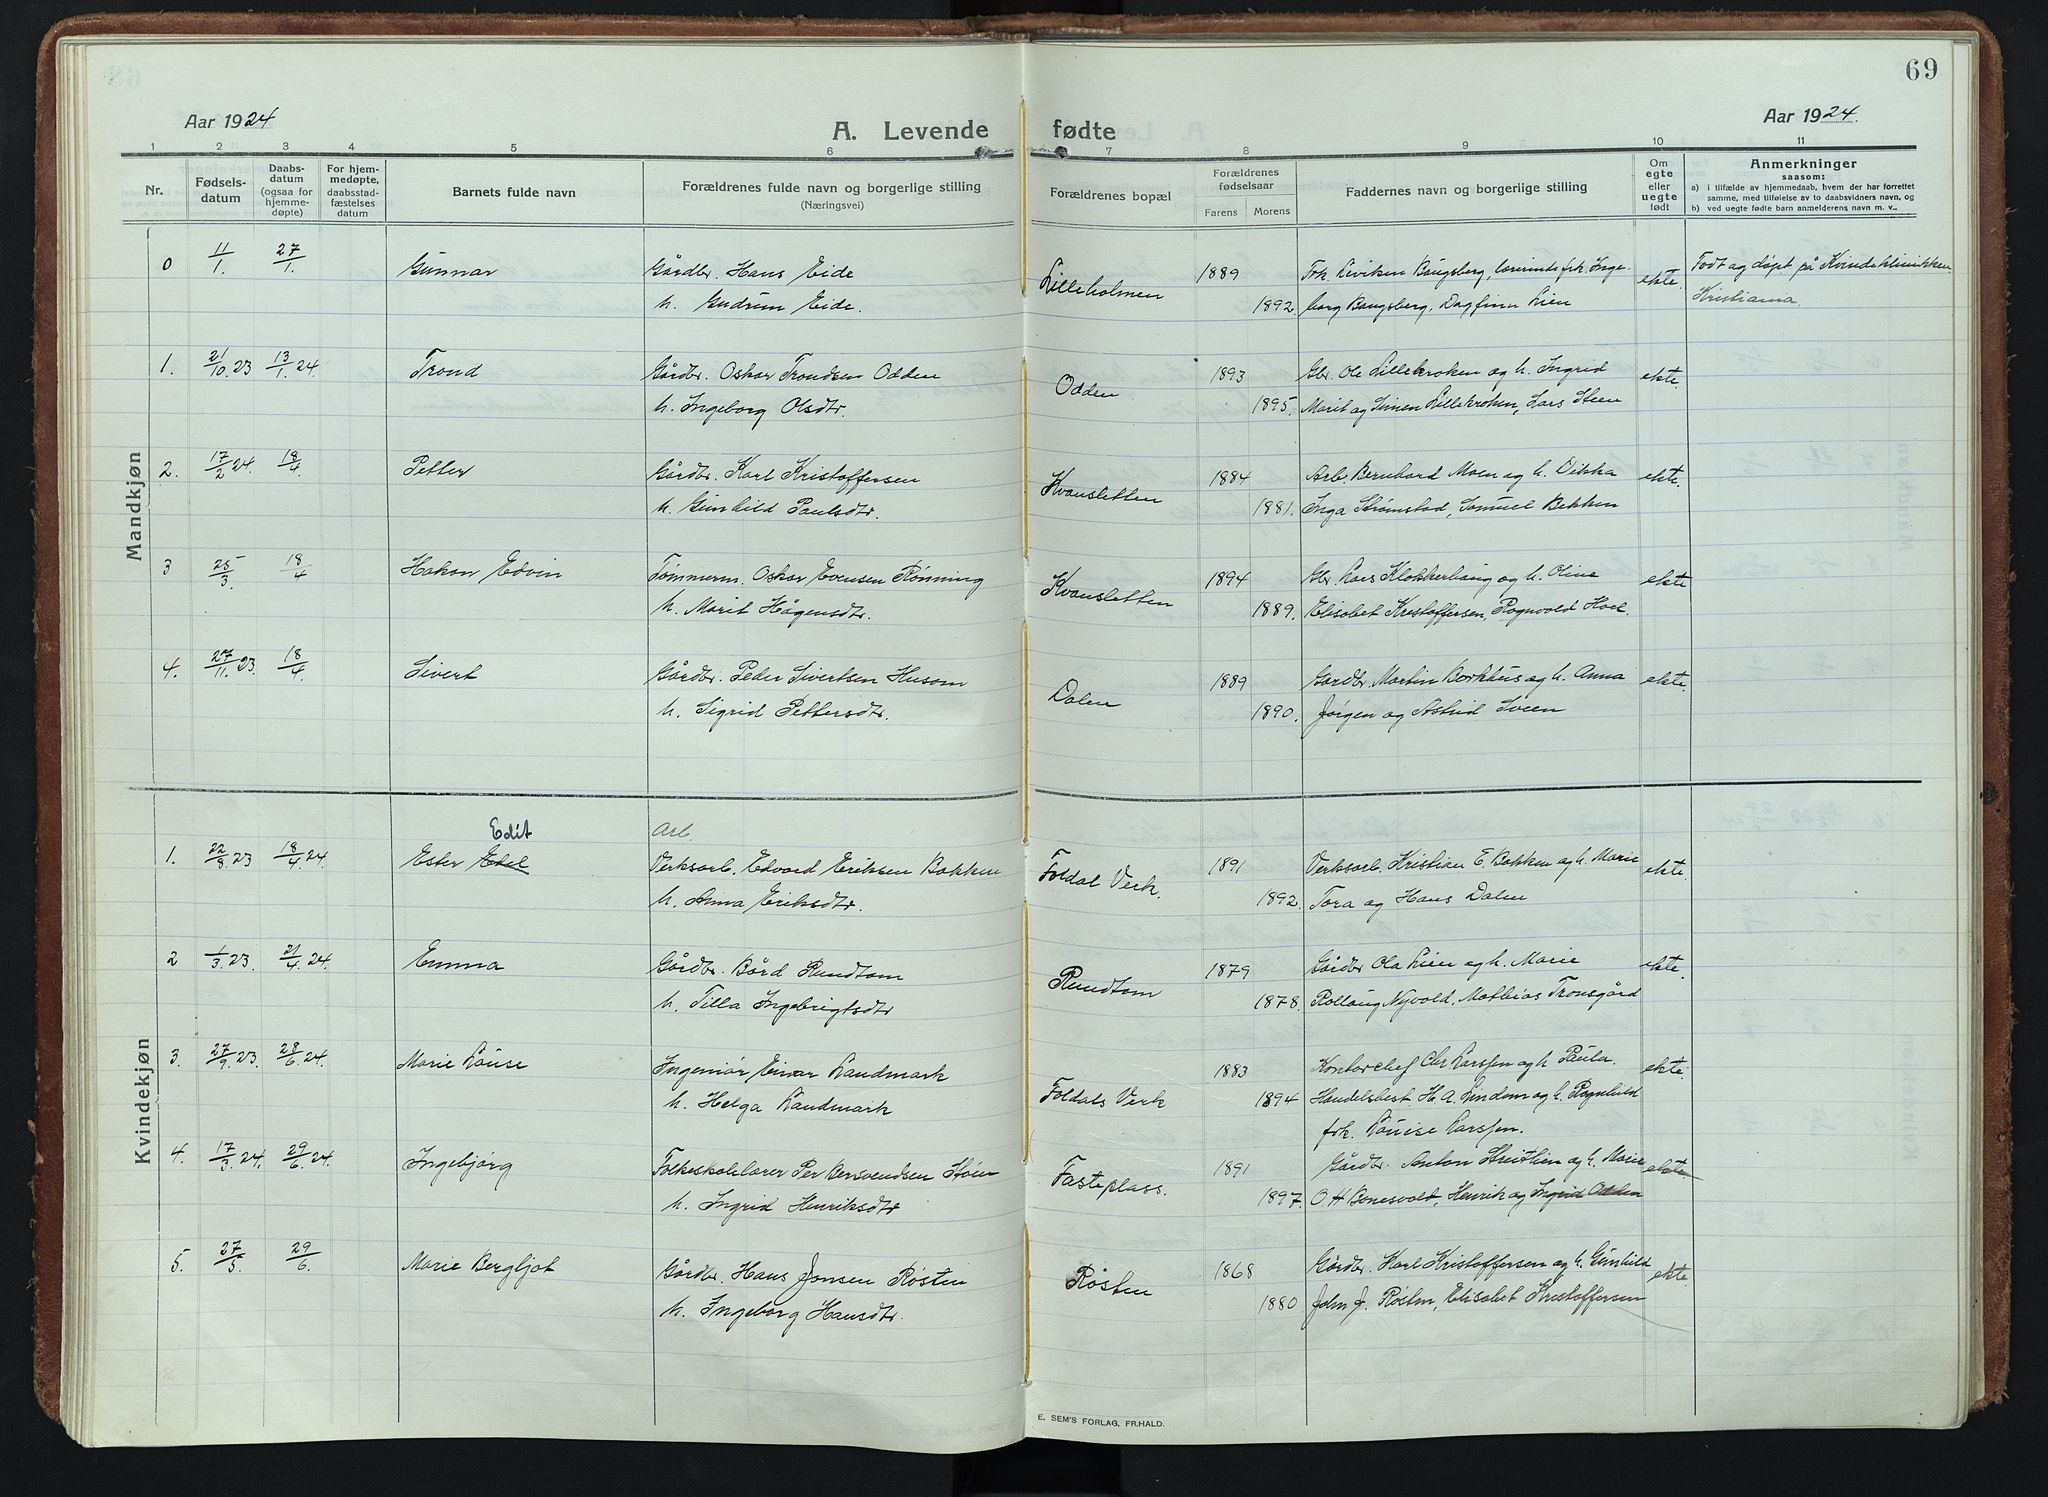 69
Aar 1924
A. Levende fødte
Aar 1924.
1 2 3 4 5 6 7 8 9 10 11
Nr.
Fødsels-
datum
Daabs-
datum
(ogsaa for
hjemme-
døpte)
For hjem-
medøpte,
daabsstad-
fæstelses
datum
Barnets fulde navn
Forældrenes fulde navn og borgerlige stilling
(Næringsvei)
Forældrenes bopæl
Forældrenes
fødselsaar
Farens Morens
Faddernes navn og borgerlige stilling
Om
egte
eller
uegte
født
Anmerkninger
saasom:
a) i tilfælde av hjemmedaab, hvem der har forrettet
samme, med tilføielse av to daabsvidners navn, og
b) ved uegte fødte barn anmelderens navn m. v..
Mandkjøn
0 11/1. 27/1. Gunnar Gårdbr. Hans Eide Lilleholmen 1889 Frk. Liviken Baugsberg, lærerinde frk. Inge- ekte. Født og døpt på Kvindeklinikken
h. Gudrun Eide. 1892. borg Baugsberg, Dagfinn Lien Kristiania
1. 21/10.23 13/1.24. Trond Gårdbr. Oskar Trondsen Odden Odden 1893 Gbr. Ole Lillekroken og h. Ingrid ekte.
h. Ingeborg Olsdtr. 1895. Marit og Simen Lillekroken, Lars Steen
2. 17/2 24. 18/4 Petter Gårdbr. Karl Kristoffersen Kvansletten 1884 Arb. Bernhard Moen og h. Dikka ekte.
h. Gunhild Paulsdtr. 1881. Inga Strømstad, Samuel Bekken
3 25/3. 18/4 Hakon Edvin Tømmerm. Oskar Evensen Rønning Kvansletten 1894 Gbr. Lars Klokkerhaug og h. Oline ekte
h. Marit Hågensdtr. 1889. Elisabet Kristoffersen, Ragnvald Hoel.
4. 27/11.23. 18/4. Sivert Gårdbr. Peder Sivertsen Husom Dalen 1889 Gårdbr. Martin Borkhus og h. Anna ekte.
h. Sigrid Pettersdtr. 1890. Jørgen og Astrid Sveen
Kvindekjøn
Edit Arb
1. 22/8 23 18/4 24. Ester Edel Verksarb. Edvard Eriksen Bakken Foldal Verk. 1891 Verksarb. Kristian E. Bakken og h. Marie ekte.
h. Anna Eriksdtr. 1892. Tora og Hans Dalen
2 1/3.23. 21/4.24. Emma Gårdbr. Bård Rundtom Rundtom 1879 Gårdbr Ola Lien og h. Marie ekte.
h. Tilla Ingebrigtsdtr 1878. Rollaug Nyvold, Mathias Tronsgård
3. 27/9.23. 28/6 24. Marie Louise Ingeniør Einar Landmark Foldals Verk 1883 Kontorchef Chr Larssen og h Paula. ekte.
h. Helga Landmark 1894 Handelsbest. H. A. Lindem og h. Ragnhild
frk. Louise Larssen.
4. 17/3.24. 29/6.24. Ingebjørg Folkeskolelærer Per Bersvendsen Støen Fasteplass. 1891 Gårdbr. Anton Streitlien og h. Marie ekte.
h. Ingrid Henriksdtr 1897. O H Bonesvold, Henrik og Ingrid Odden
5. 27/5. 29/6. Marie Bergljot Gårdbr. Hans Jonsen Røsten Røsten 1868 Gårdbr. Karl Kristoffersen og h. Gunhild ekte
h. Ingeborg Hansdtr. 1880. John J. Røsten, Elisabet Kristoffersen
E. SEM'S FORLAG, FR.HALD.